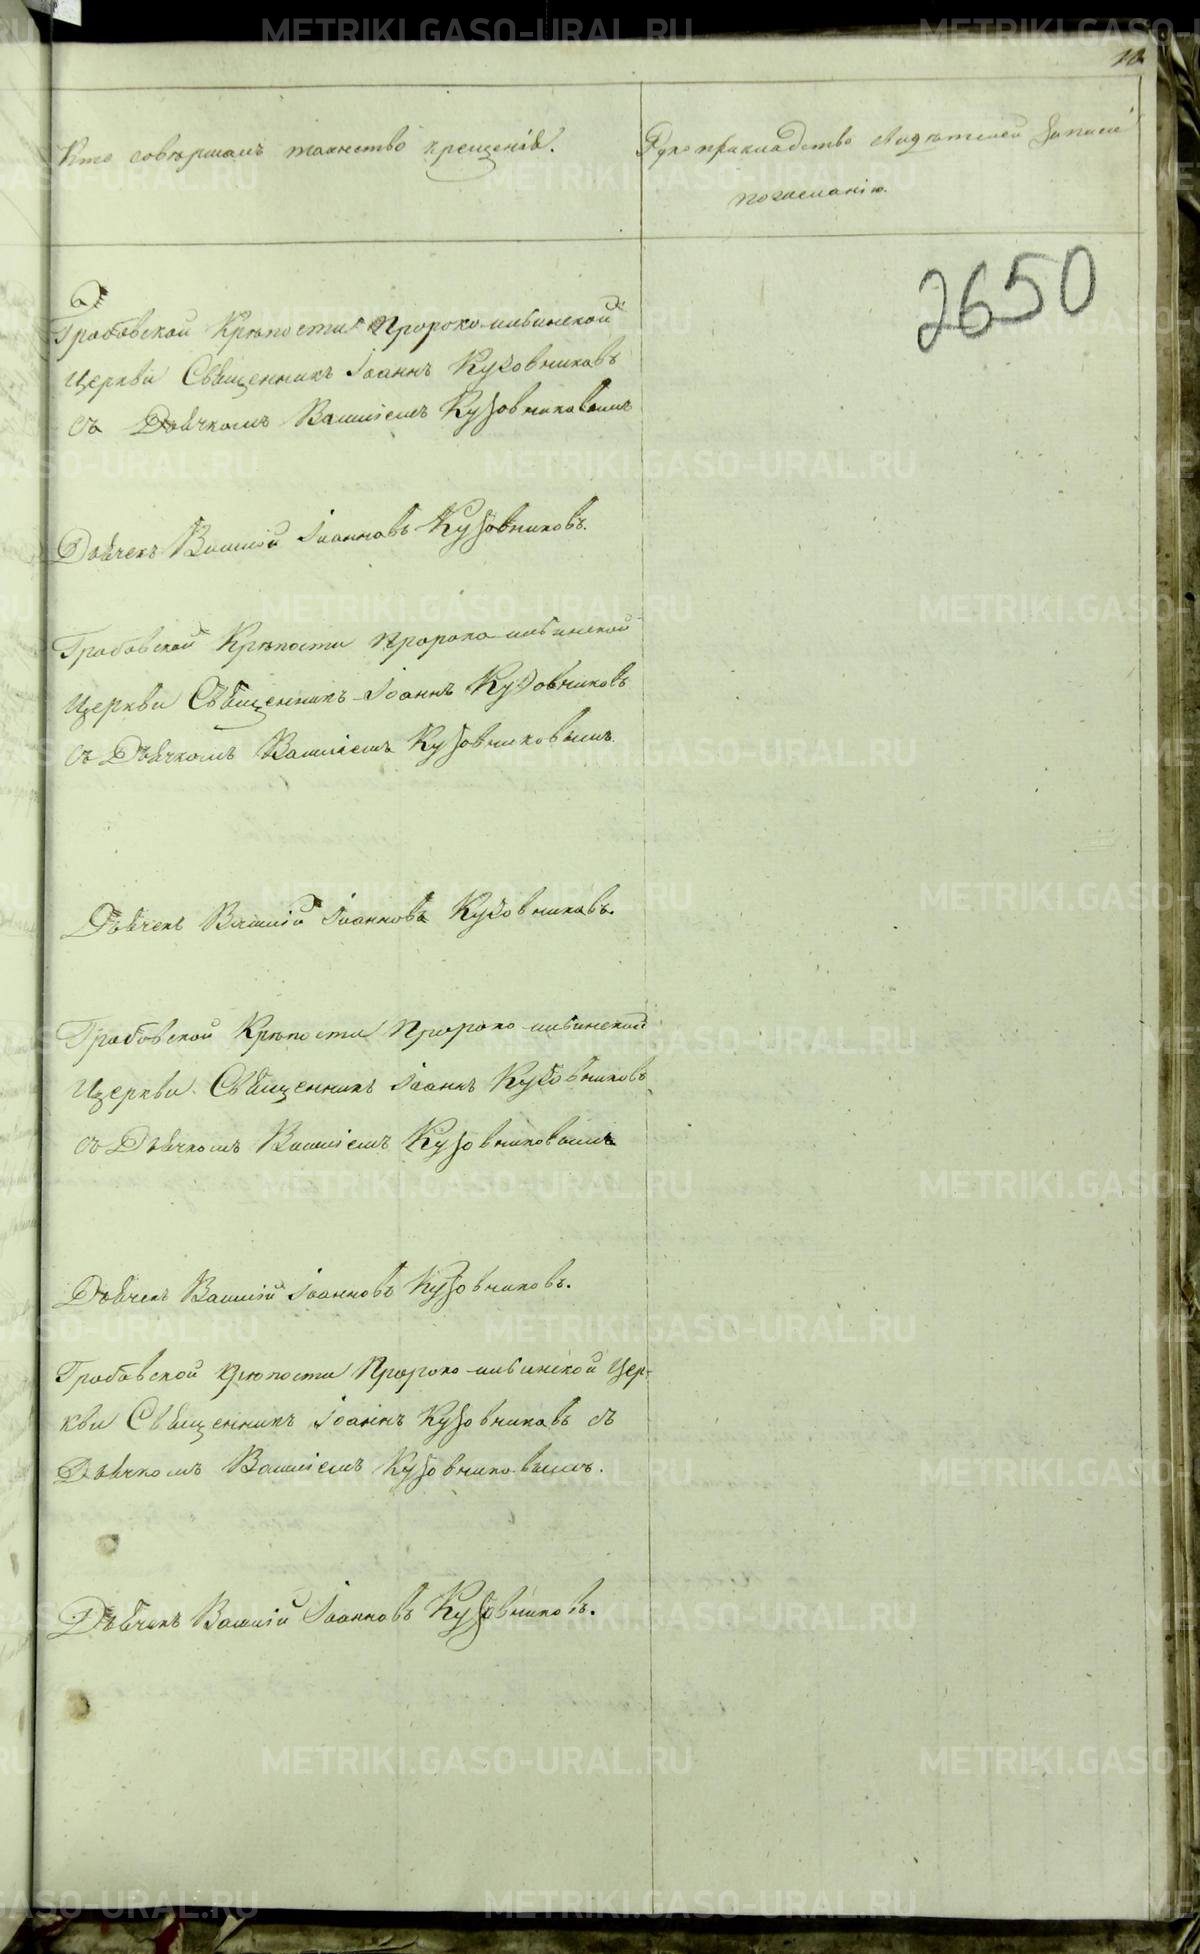 10
Кто совершалъ таинство крещенія.
Рукоприкладство свидѣтелей записи
по желанію.
2650
Грабовской Крѣпости Пророко-ильинской
Церкви Священникъ Іоаннъ Кузовниковъ
съ Дьячкомъ Василіемъ Кузовниковымъ
Дьячекъ Василій Іоанновъ Кузовниковъ.
Грабовской Крѣпости Пророко-ильинской
Церкви Священникъ Іоаннъ Кузовниковъ
съ Дьячкомъ Василіемъ Кузовниковымъ.
Дьячекъ Василій Іоанновъ Кузовниковъ.
Грабовской Крѣпости Пророко-ильинской
Церкви Священникъ Іоаннъ Кузовниковъ
съ Дьячкомъ Василіемъ Кузовниковымъ
Дьячекъ Василій Іоанновъ Кузовниковъ.
Грабовской крѣпости Пророко-ильинской Цер-
кви Священникъ Іоаннъ Кузовниковъ съ
Дьячкомъ Василіемъ Кузовниковымъ.
Дьячекъ Василій Іоанновъ Кузовниковъ.
METRIKI.GASO-URAL.RU